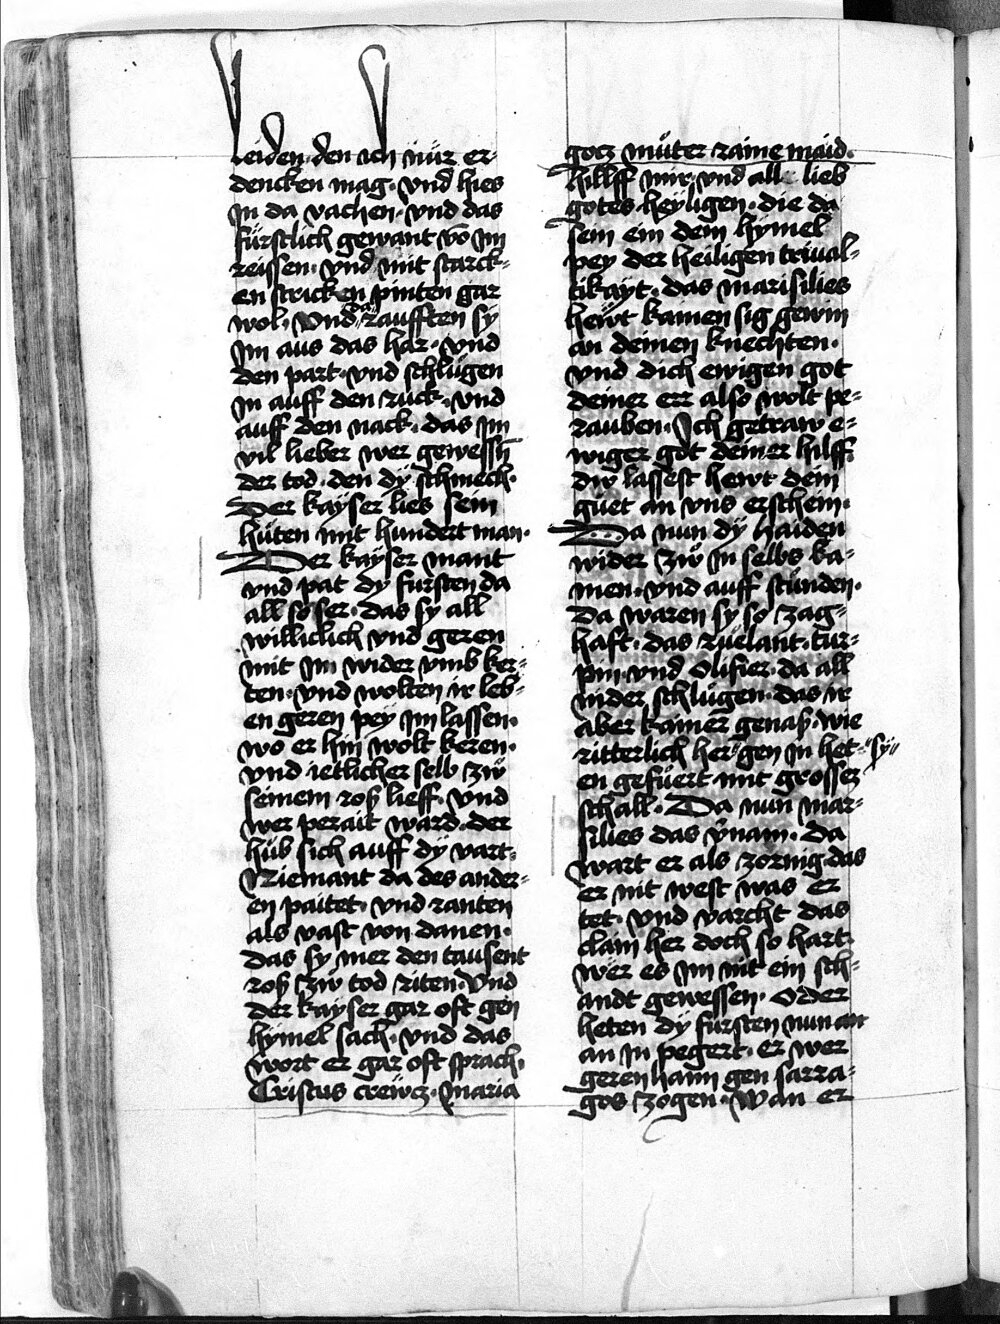 leiden · den ich nür er-
dencken mag · vnd hies
jn da vachen · vnd das
fürstlich gewant vō im
reissen · vnd mit starck-
en stricken pinten gar
wol · vnd da raufften sy
jm aus das har · vnd
den part · vnd schlügen
jn auff den ruck · vnd
auff den nack · das jm
vil lieber wer gewessn̄
der tod · den dy schmech ·
Der kayser lies sein
hüten mit hundert man ·
Der kayser mant
vnd pat dy fursten da
all so ser · das sy all
williclich vnd geren
mit jm wider vmb ker-
ten · vnd wolten ir leb-
en geren pey jm lassen ·
wo er hin wolt keren ·
vnd ietlicher selb zẘ
seinem roß lieff · vnd
wer perait ward · der
hüb sich auff dÿ vart ·
Niemant da des ander-
en paitet · vnd ranten
als vast von danen ·
das sy mer den tausent
roß zẘ tod riten · vnd
der kayser gar oft gen
hymel sach · vnd das
wort er gar oft sprach ·
Cristus crewcz · maria
gotz müter raine maid ·
hillff mir · vnd alle lieb
gotes heyligen · die da
sein ein dem hymel
pey der heiligen triual-
tikayt · das marisilies
hewt kainen sig gewin
an deinen knechten ·
vnd dich ewigen got
deiner err also wolt pe-
rauben · Ich getraw e-
wiger got deiner hilff
dw lassest hewt dein
güet an vns erschein ·
Da nun dÿ haiden
wider zẘ jn selbs ka-
men · vnd auff stunden ·
Da waren sy so zag-
haft · das ruelant · tur-
pin · vnd Olifier · da all
nider schlügen · das ir
aber kainer genaß · wie
ritterlich her gen jn het · sÿ
en gefüert mit grosser
schall · Da nun mar-
silies das v̈nam · Da
wart er als zornig das
er nit west was er
tet · vnd varcht das
clain her doch so hart
wer es jm nit ein sch-
andt gewessen · Oder
heten dÿ fürsten nun an
an jn pegert · er wer
geren haim gen sarra-
gos zogen · wan er